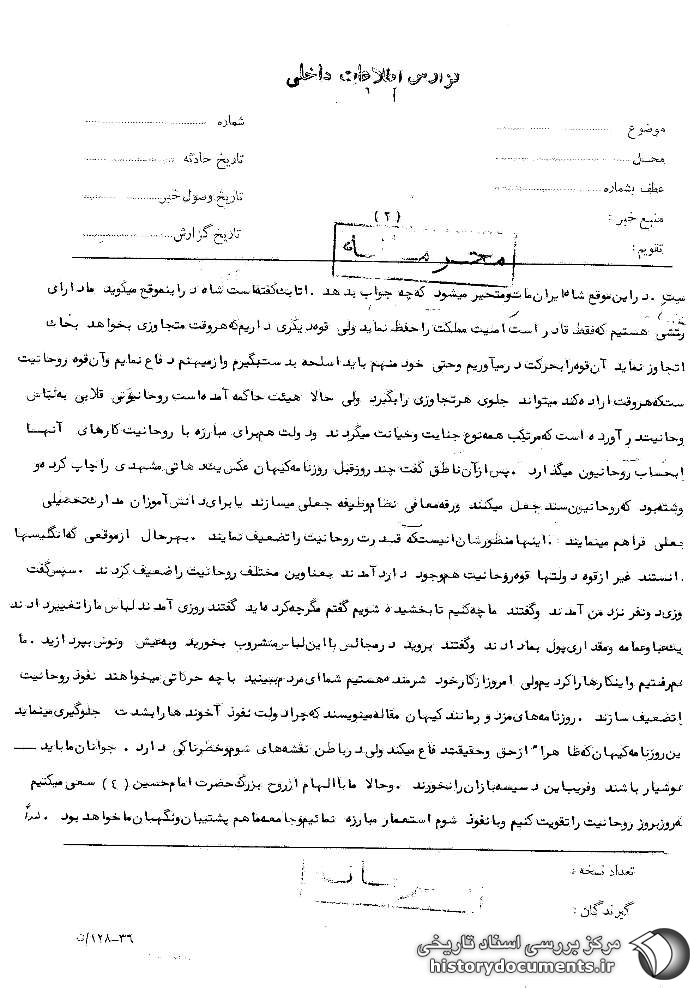 گزارش اطلاعات داخلی
موضوع
شماره
محل
تاریخ حادثه
عطف بشماره
تاریخ وصول خبر
منبع خبر :
(۲)
تقویم :
تاریخ گزارش
محرمانه
در این موقع شاه ایران مات و متحیر میشود که چه جواب بدهد . اتابک گفته است شاه در این موقع میگوید ما دارای
هستیم که فقط قادر است امنیت مملکت را حفظ نماید ولی قوه دیگری داریم که هر وقت متجاوزی بخواهد بخاک
تجاوز نماید آن قوه را بحرکت در میآوریم وحتی خود منهم باید اسلحه بدست بگیرم و از میهنم دفاع نمایم و آن قوه روحانیت
ستکه هر وقت اراده کند میتواند جلوی هر تجاوزی را بگیرد ولی حالا هیئت حاکمه آمده است روحانیونی قلابی به لباس
وحانیت در آورده است که مرتکب همه نوع جنایت وخیانت میگردند ودولت هم برای مبارزه با روحانیت کارهای آنها
بحساب روحانیون میگذارد . پس از آن ناطق گفت چند روز قبل روزنامه کیهان عکس مشهدی را چاپ کرده و
وشته بود که روحانیون سند جعل میکنند ورقه معافی نظام وظیفه جعلی میسازند یا برای دانش آموزان مدارک تحصیلی
جعلی فراهم مینمایند . اینها منظورشان اینستکه قدرت روحانیت را تضعیف نمایند . بهر حال از موقعی که انگلیسها
انستند غیر از قوه دولتها قوه روحانیت هم وجود دارد آمدند بعناوین مختلف روحانیت را ضعیف کردند . سپس گفت
وزی دو نفر نزد من آمدند وگفتند ما چه کنیم تا بخشیده شویم گفتم مگر چه کرده اید گفتند روزی آمدند لباس ما را تغییر دادند
یک عبا و عمامه و مقداری پول بما دادند وگفتند بروید در مجالس با این لباس مشروب بخورید و به عیش ونوش بپردازید . ما
هم رفتیم و اینکارها را کردیم ولی امروز از کار خود شرمنده هستیم شما ای مردم ببینید با چه حرکاتی میخواهند نفوذ روحانیت
را تضعیف سازند . روزنامه های مزدور مانند کیهان مقاله مینویسند که چرا دولت نفوذ آخوند ها را بشدت جلوگیری مینماید
این روزنامه کیهان که ظاهرا" از حق و حقیقت دفاع میکند ولی در باطن نقشه های شوم وخطرناکی دارد . جوانان ما باید
هوشیار باشند وفریب این دسیسه بازان را نخورند . وحالا ما با الهام از روح بزرگ حضرت امام حسین (ع) سعی میکنیم
که روز بروز روحانیت را تقویت کنیم وبا نفوذ شوم استعمار مبارزه نمائیم وجامعه ما هم پشتیبان ونگهبان ما خواهد بود .
تعداد نسخه :
محرمانه
گیرندگان :
۳۶-۱۲۸/ن
مرکز بررسی اسناد تاریخی
historydocuments.ir